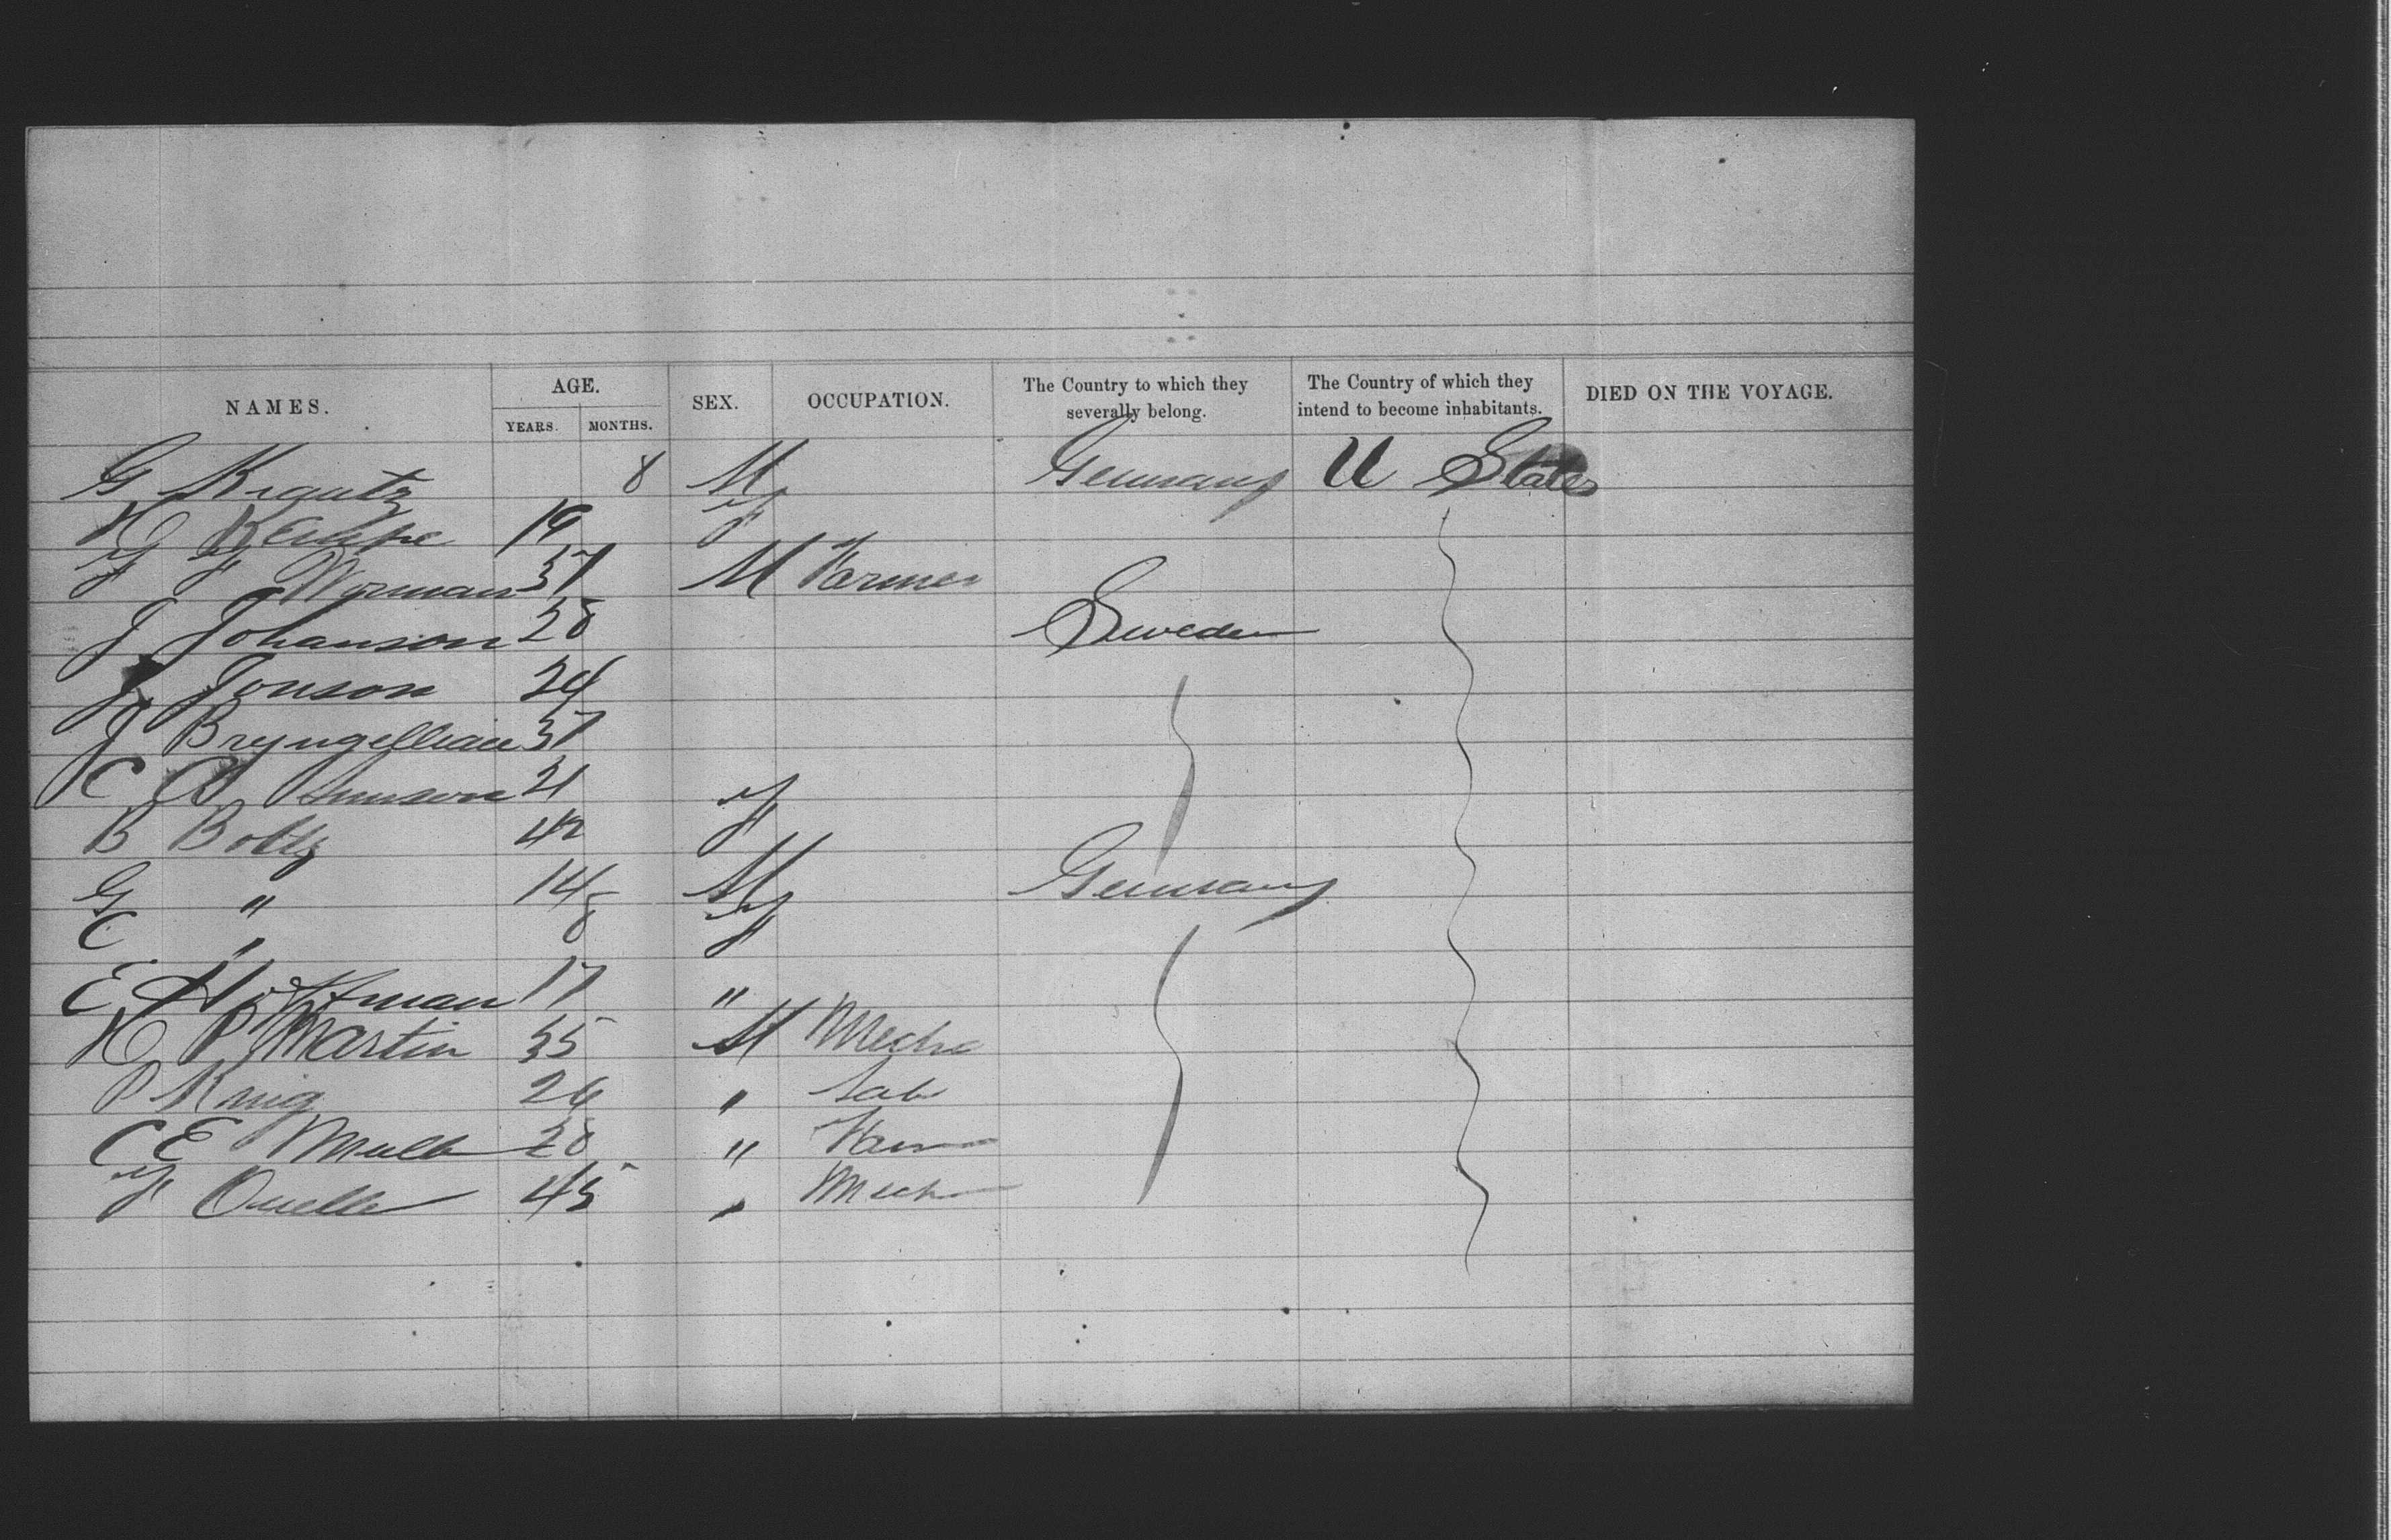 NAMES. AGE. YEARS. MONTHS. SEX. OCCUPATION. The Country to which they severally belong. The Country of which they intend to become inhabitants. DIED ON THE VOYAGE.
G Krautz 8 M Germany U States
H Kempe 19 F
F F Worman 37 M Farmer
J Johanson 28 Sweden
J Jonson 24
J 37
C 21 F
B Boltz 42 F
G " 14 M Germany
C " 8 F
E Hoffman 17 "
H P Martin 35 M Mecha
P 26 " Lab
C E Mull 28 " Farm
F 45 " Mech